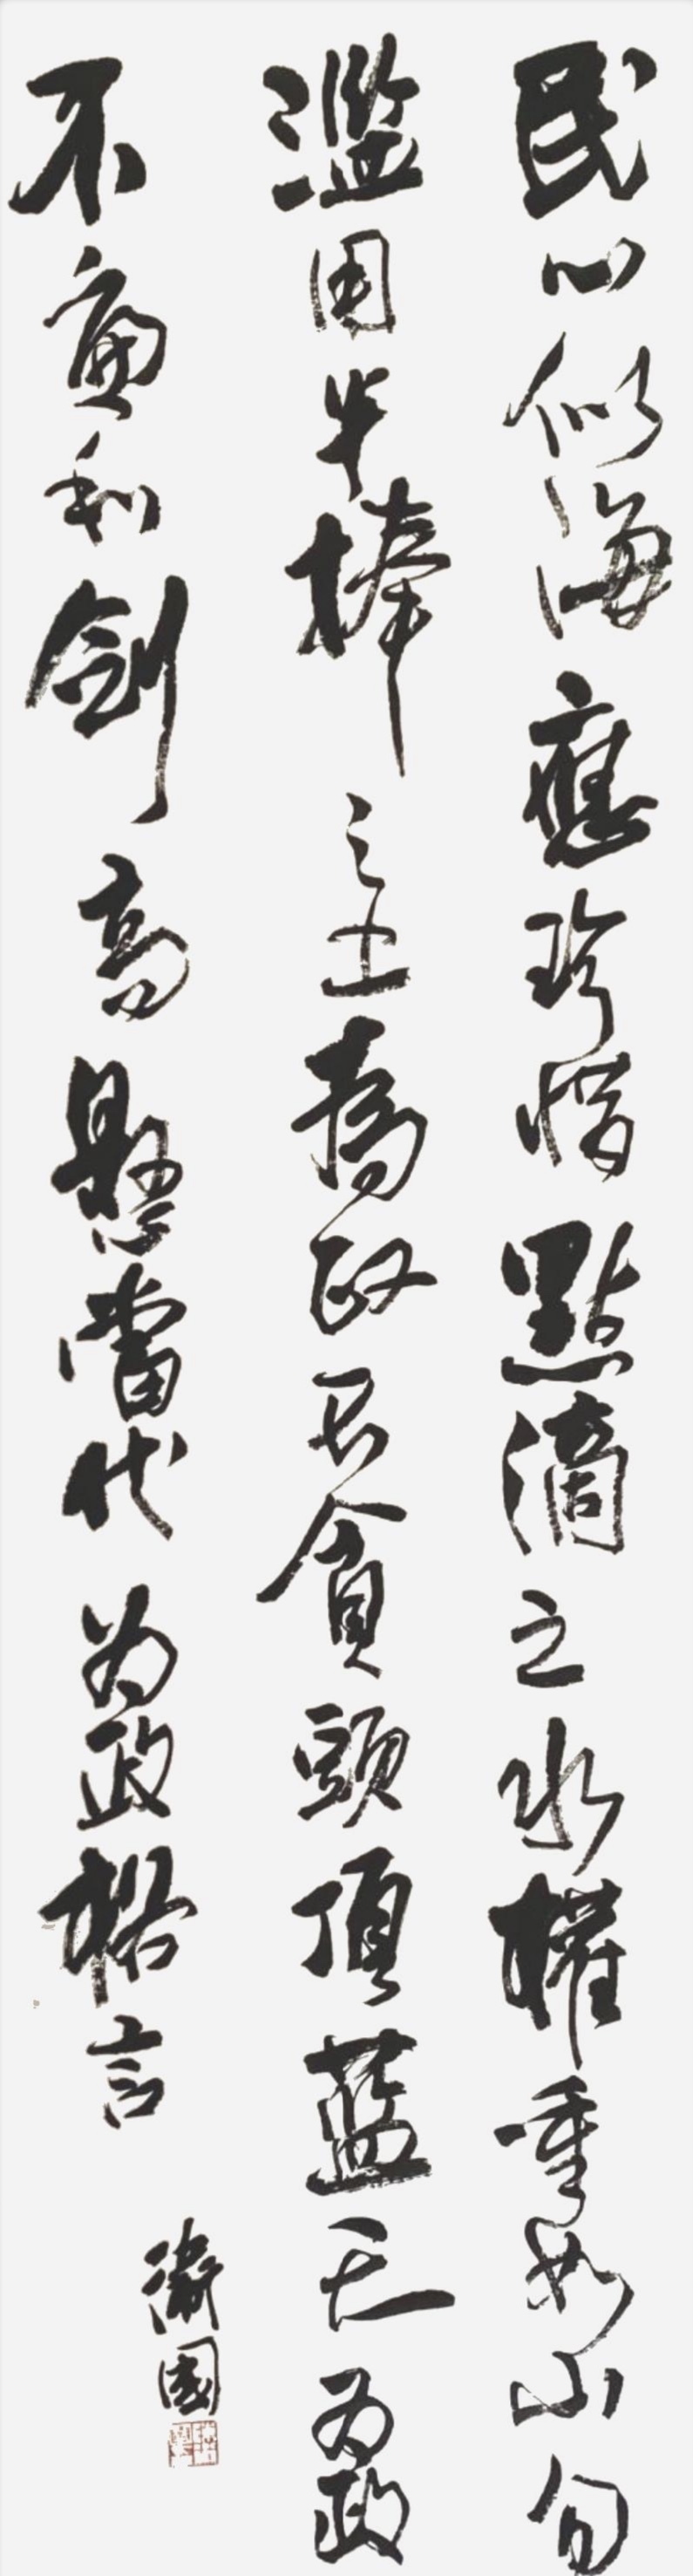 民心似海應珍惜點滴之水權重如山勿
濫用半捧之土為政不貪頭頂藍天为政
不廉利劍高懸當代为政格言
衛國